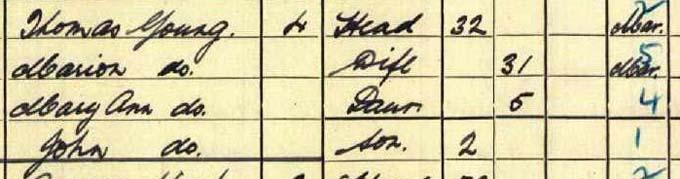 Thomas Young. 4 Head 32 Mar.
Marion do. Wife 31 Mar. 5
Mary Ann do. Daur. 5 4
John do. Son. 2 1